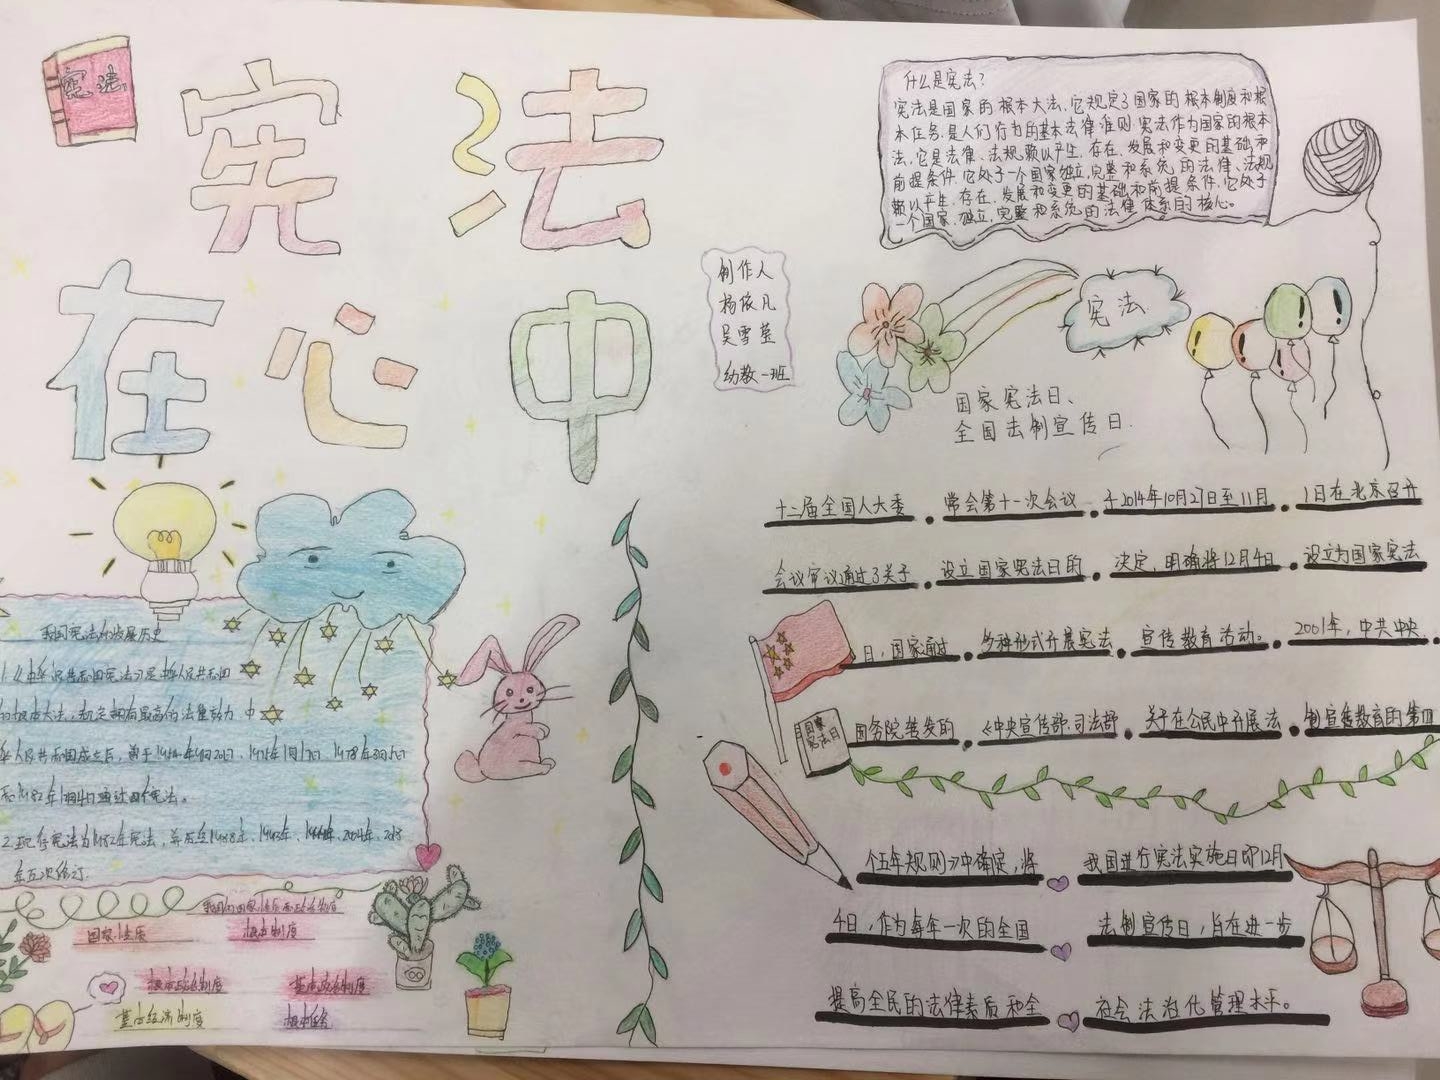 宪法
宪法
在心中
什么是宪法?
宪法是国家的根本大法,它规定了国家的根本制度和根
本任务.是人们行为的基本法律准则.宪法作为国家的根本
法,它是法律、法规赖以产生,存在、发展和变更的基础和
前提条件,它处于一个国家独立,完整和系统的法律、法规
赖以产生,存在、发展和变更的基础和前提条件,它处于
一个国家、独立,完整和系统的法律体系的核心。
制作人
杨依凡
吴雪莹
幼教一班
宪法
国家宪法日、
全国法制宣传日.
十二届全国人大委 常会第十一次会议 于2014年10月27日至11月 1日在北京召开
会议审议通过了关于 设立国家宪法日的 决定,明确将12月4日 设立为国家宪法
日,国家通过 多种形式开展宪法 宣传教育活动。 2001年,中共中央
国务院转发的 《中央宣传部.司法部 关于在公民中开展法 制宣传教育的第四
国家
宪法日
个五年规则》中确定,将 我国进行宪法实施日即12月
4日,作为每年一次的全国 法制宣传日,旨在进一步
提高全民的法律素质和全 社会法治化管理水平。
我国宪法的发展历史
根本大法,规定拥有最高的法律效力 中
华人民共和国成立后,曾于1954年9月20日、1975年1月17日、1978年3月5日
和1982年12月4日通过四个宪法。
2.现行宪法为1982年宪法,并历经1988年、1993年、1999年、2004年、2018
年五次修订.
国家性质 根本制度
根本政治制度 基本政治制度
基本经济制度 根本任务